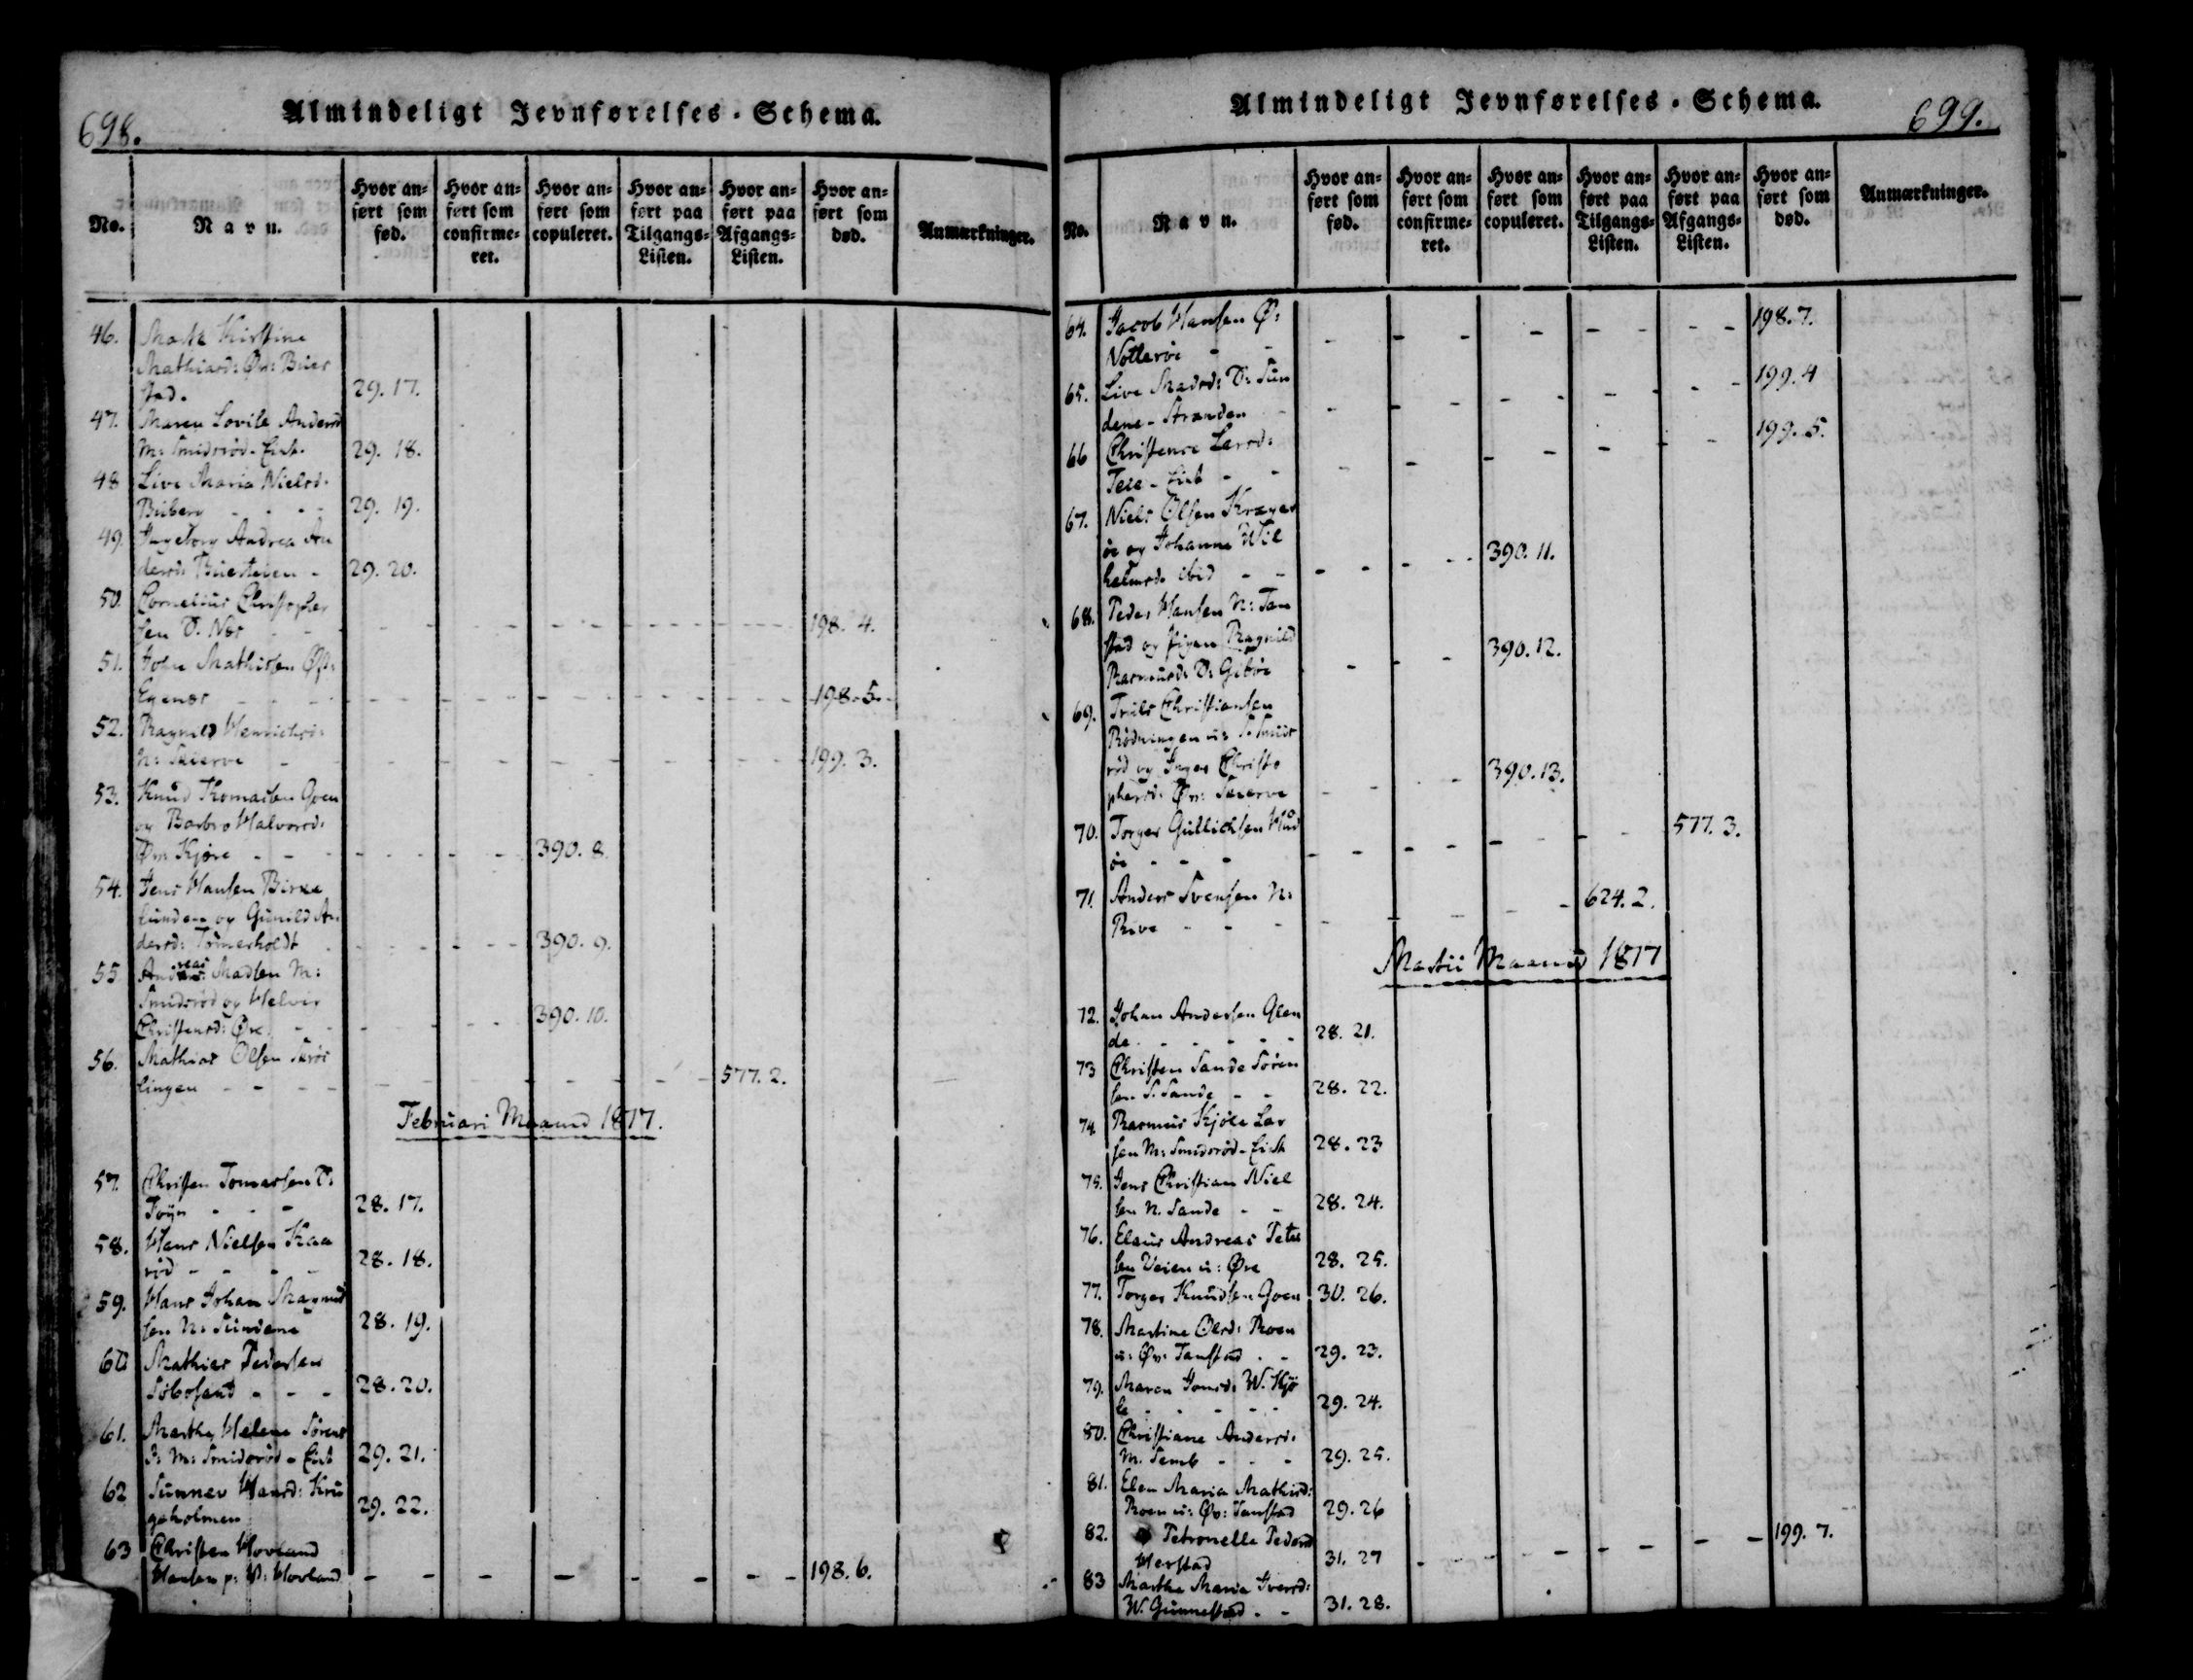 698.
Almindeligt Jevnførelses-Schema.
No.
Navn.
Hvor anført som født.
Hvor anført som confirmeret.
Hvor anført som copuleret.
Hvor anført paa Tilgangs-Listen.
Hvor anført paa Afgangs-Listen.
Hvor anført som død.
Anmærkninger.
46. Kirstine
Mathiasd: Øv:
stad. 29. 17.
47. Maren Lovise Andersd
M: Smidsrød - Eie. 29. 18.
48 Live Maria Nielsd.
Buberg - - - - 29. 19.
49. Ingeborg Andrea An
dersd: - 29. 20.
50. Cornelius Christopher
sen 198. 4.
51. John Mathissen Øst:
Egenæs - 198. 5.
52. Ragnild Henrichsd:
N: Skierve - 199. 3.
53. Knud Thomassen Goen
og Barbro Halvorsd:
Øv: Kjøre - - - 390. 8.
54. Jens Hansen Birke
lunden og Gunild An
dersd: Tømerholdt 390. 9.
55 Andreas Madsen M:
Smidsrød og Helvig
Christensd: Øre - - 390. 10.
56. Mathias Olsen
lingen - - - 577. 2.
Februari Maaned 1817.
57. Christen Tomassen
- - - 28. 17.
58. Hans Nielsen Kaa
rød - - - - 28. 18.
59. Hans Johan Magnus
sen N: Sundene 28. 19.
60 Mathias Pedersen
- - - 28. 20.
61. Marthe Helene Sørens
D: M: Smidsrød - Eie 29. 21.
62 Sunnev Hansd: Kru
geholmen 29. 22.
63 Christen Hovland
Hansen p: V: Hovland - - - - - - - - 198. 6.
Almindeligt Jevnførelses-Schema.
699.
No.
Navn.
Hvor anført som fød.
Hvor anført som confirmeret.
Hvor anført som copuleret.
Hvor anført paa Tilgangs-Listen.
Hvor anført paa Afgangs-Listen.
Hvor anført som død.
Anmærkninger.
64. Jacob Hansen Ø:
Notterøe - - 198. 7.
65. Live Madsd: V: Sun
dene - Stranden 199. 4
66 Christence Larsd:
Teie - Eie - - 199. 5.
67. Niels Olsen Krager
øe og Johanne Wil
helmsd: ibid - - 390. 11.
68. Peder Hansen N: Tan
stad og pigen Ragnild
Rasmusd: V: Gibøe 390. 12.
69. Truls Christiansen
Rødningen u: S: Smids
rød og Inger Christo
phersd: Øv: Skierve 390. 13.
70. Torger Gullichsen Hus
øe - - - 577. 3.
71. Anders Svensen N:
Rive - - - 624. 2.
Martii Maaned 1817
72. Johan Andersen Glen
de - - - - 28. 21.
73 Christen Sande Søren
sen S. Sande - - 28. 22.
74 Rasmus Kjøle Lar
sen M: Smidsrød - Eie 28. 23
75. Jens Christian Niel
sen N. Sande - - 28. 24.
76. Elaus Andreas Peter
sen Veien u: Øre 28. 25.
77. Torger Knudsen Goen 30. 26.
78. Martine Olsd: Roen
u: Øv: Tanstad - - 29. 23.
79. Maren Jonsd: W. Kjø
le - - - - - 29. 24.
80. Christiane Andersd:
M. Semb - - - 29. 25.
81. Elen Maria Mathisd:
Roen u: Øv: Tanstad 29. 26
82. Petronelle Pedersd
Herstad 31. 27 - - - - - - - 199. 7.
83 Marthe Maria Iversd:
W. Gunnestad - - 31. 28.